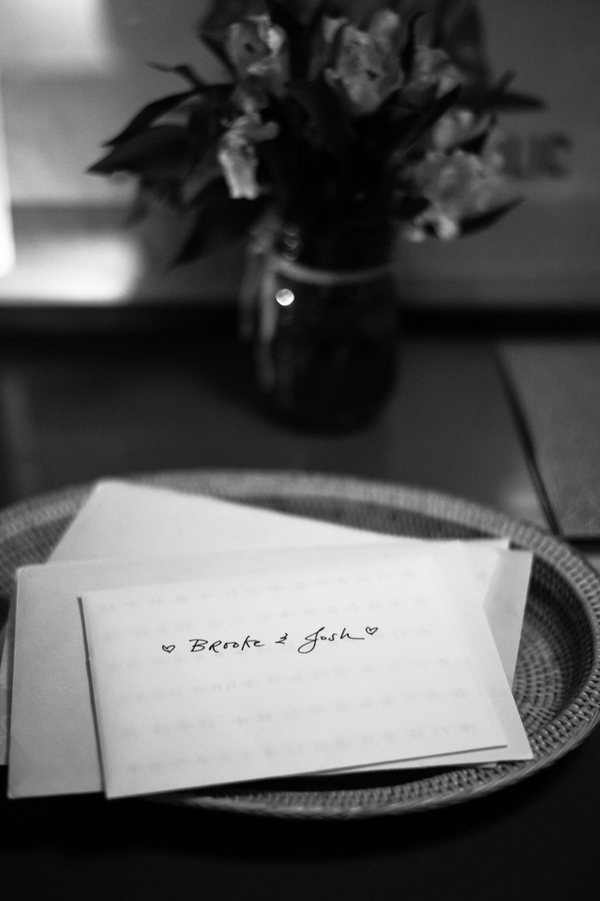 ♡ Brooke & Josh ♡